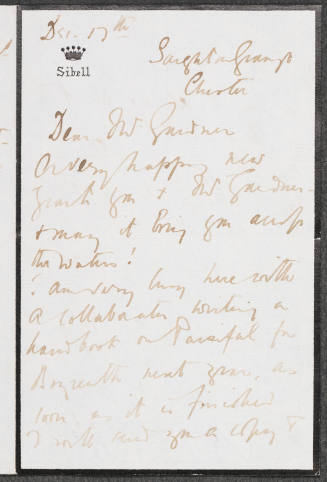 Dec. 17th
Sibell
Saighton Grange
Chester
Dear Mrs Gardner
A very happy new
year to you & Mr Gardner
& may it bring you across
the waters!
I am very busy here with
a collaborator, writing a
handbook on Parsifal for
Bayreuth next year, as
soon as it is finished
I will send you a copy &